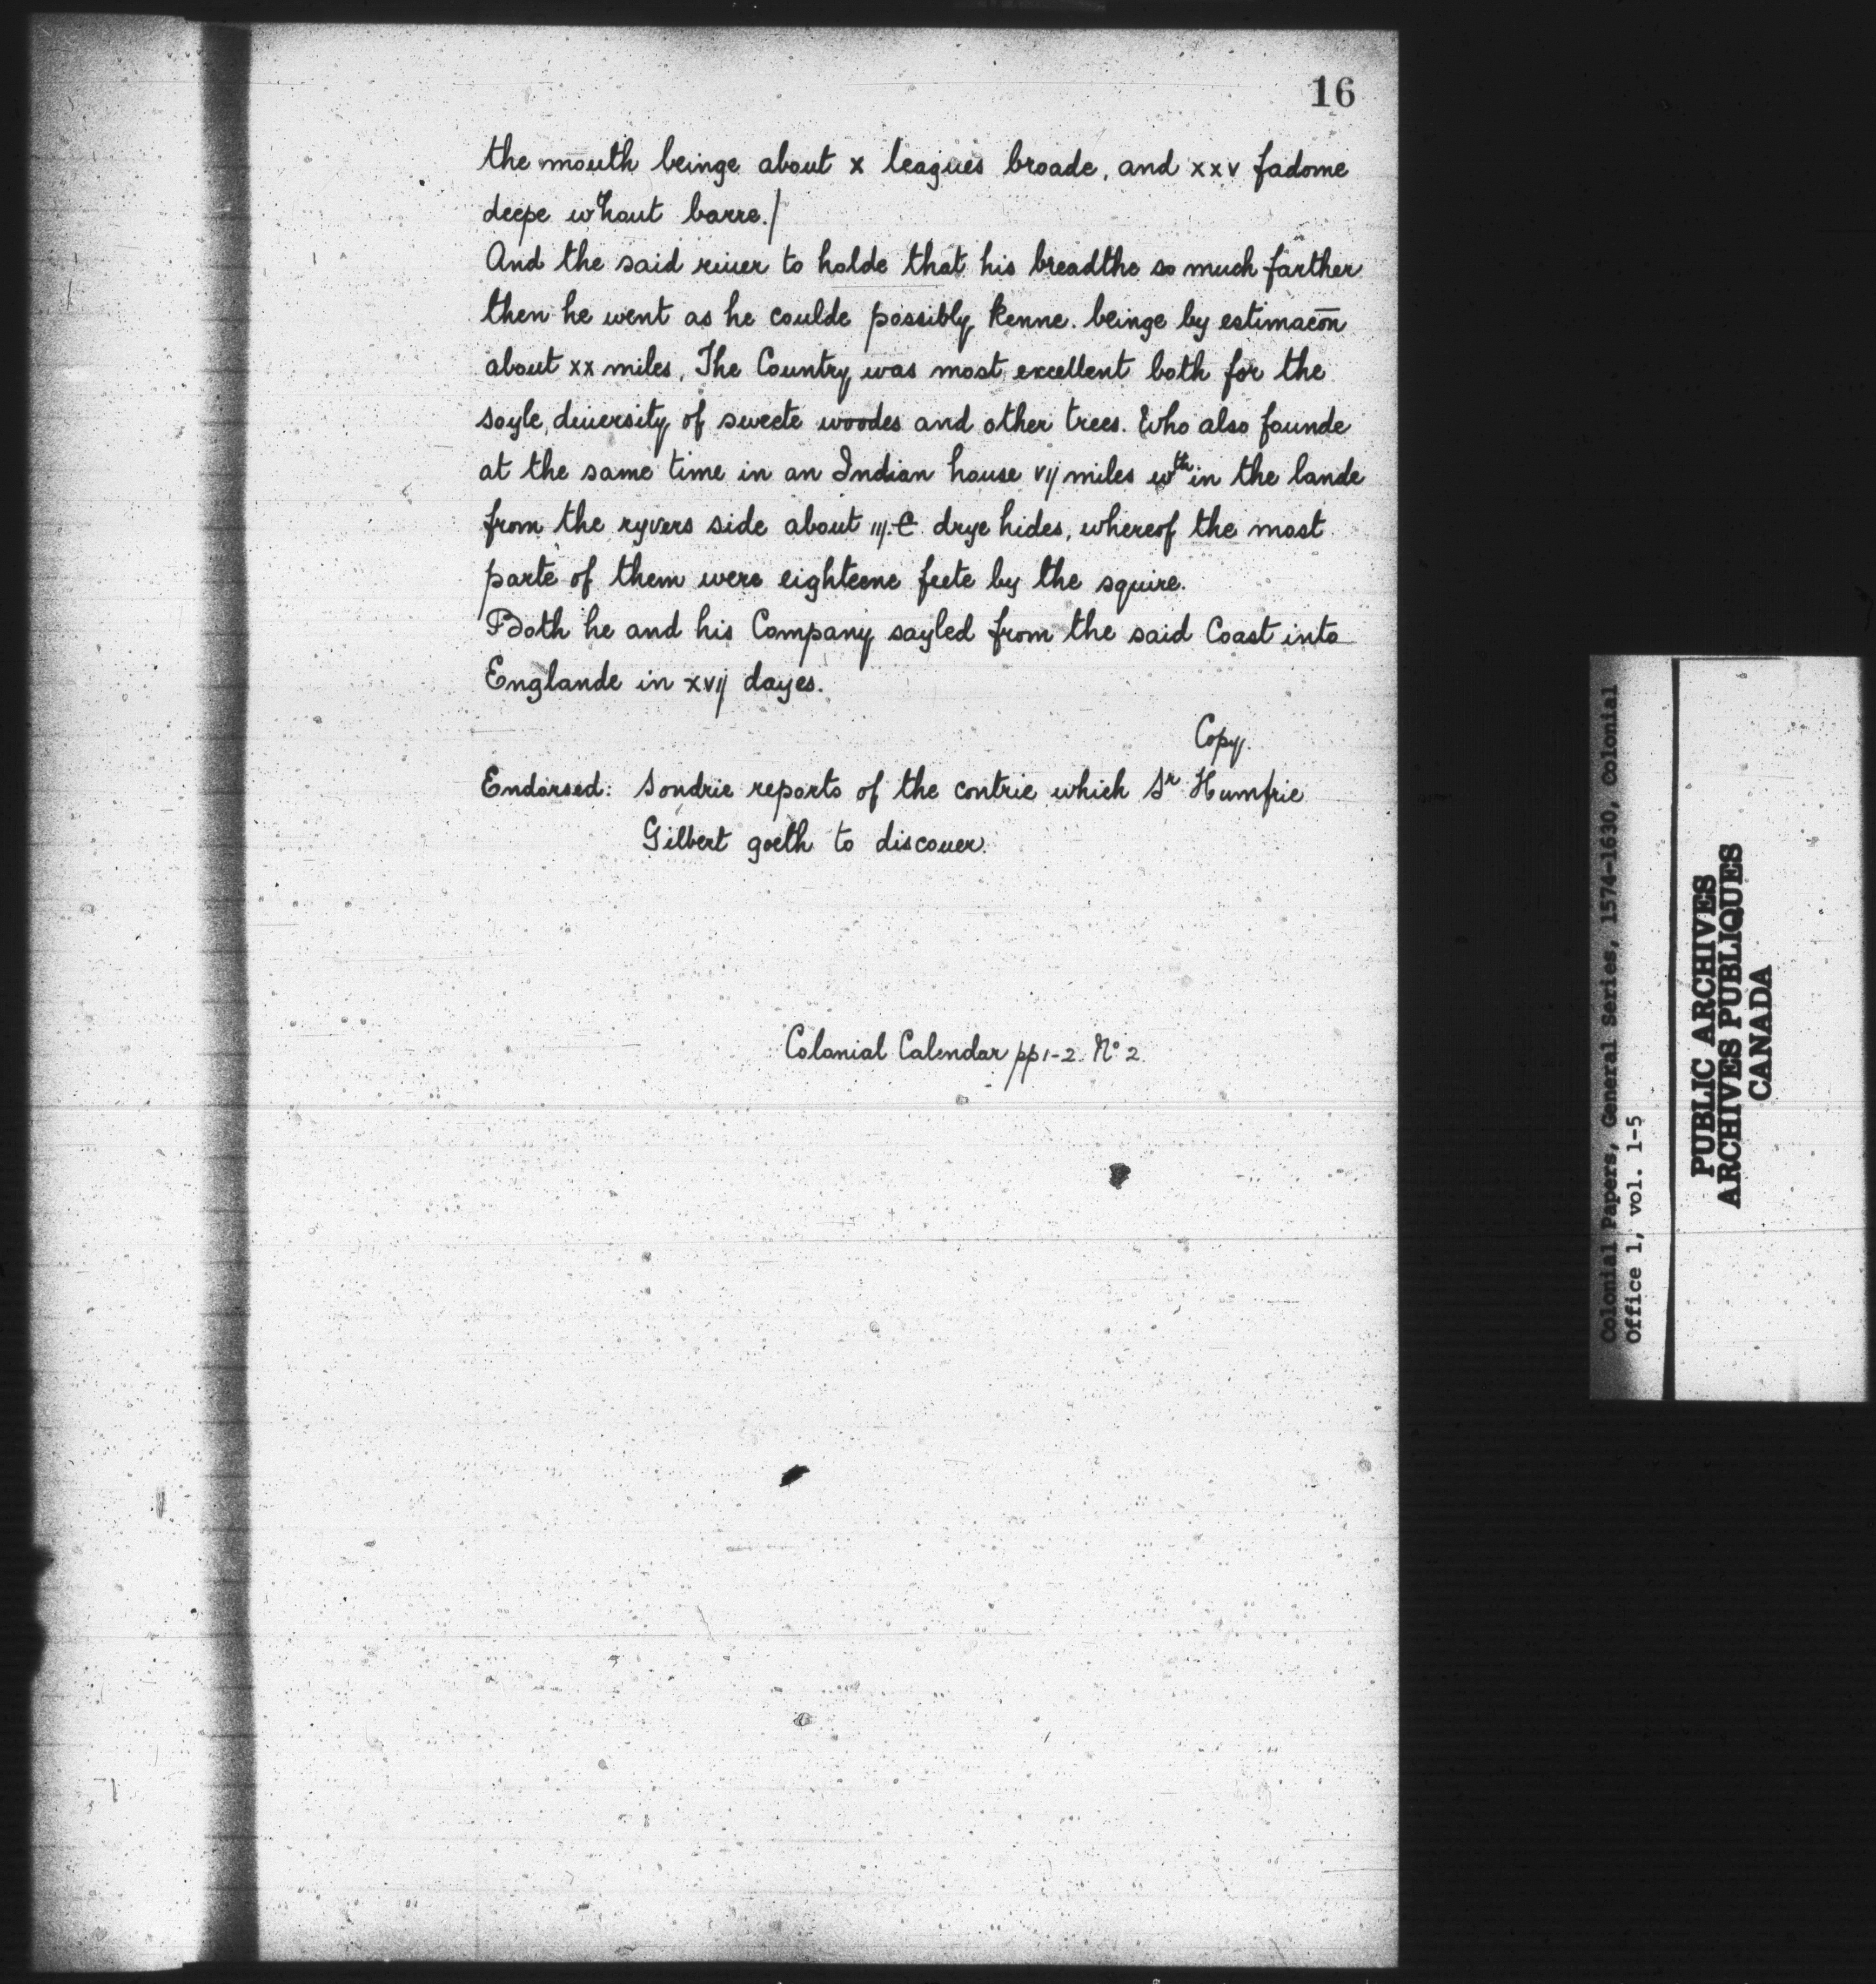 16
the mouth beinge about x leagues broade, and xxv fadome
deepe wthout barre./
And the said riuer to holde that his breadthe so much farther
then he went as he coulde possibly kenne. beinge by estimacōn
about xx miles, The Country was most excellent both for the
soyle, diuersity of sweete woodes and other trees. Who also founde
at the same time in an Indian house vij miles wth in the lande
from the ryvers side about iij.C drye hides, whereof the most
parte of them were eighteene feete by the squire.
Both he and his Company sayled from the said Coast into
Englande in xvij dayes.
Copy.
Endorsed: Sondrie reports of the contrie which Sr Humfrie
Gilbert goeth to discouer.
Colonial Calendar pp 1-2. No 2.
Colonial Papers, General Series, 1574-1630, Colonial
Office 1, vol. 1-5
PUBLIC ARCHIVES
ARCHIVES PUBLIQUES
CANADA